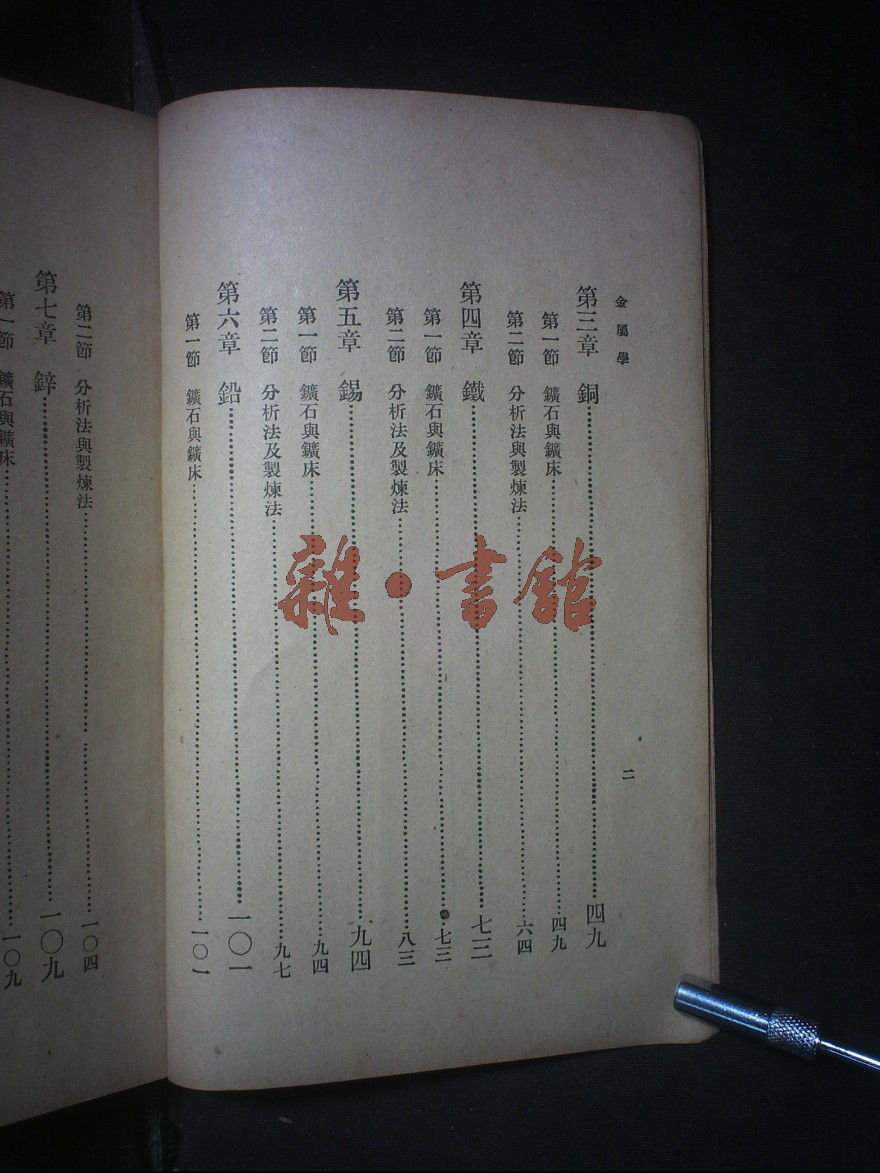 金屬學
二
第三章 銅 四九
第一節 鑛石與鑛床 四九
第二節 分析法與製煉法 六四
第四章 鐵 七三
第一節 鑛石與鑛床 七三
第二節 分析法及製煉法 八三
第五章 錫 九四
第一節 鑛石與鑛床 九四
第二節 分析法及製煉法 九七
第六章 鉛 一〇一
第一節 鑛石與鑛床 一〇一
第二節 分析法與製煉法 一〇四
第七章 鋅 一〇九
第一節 鑛石與鑛床 一〇九
雜·書館